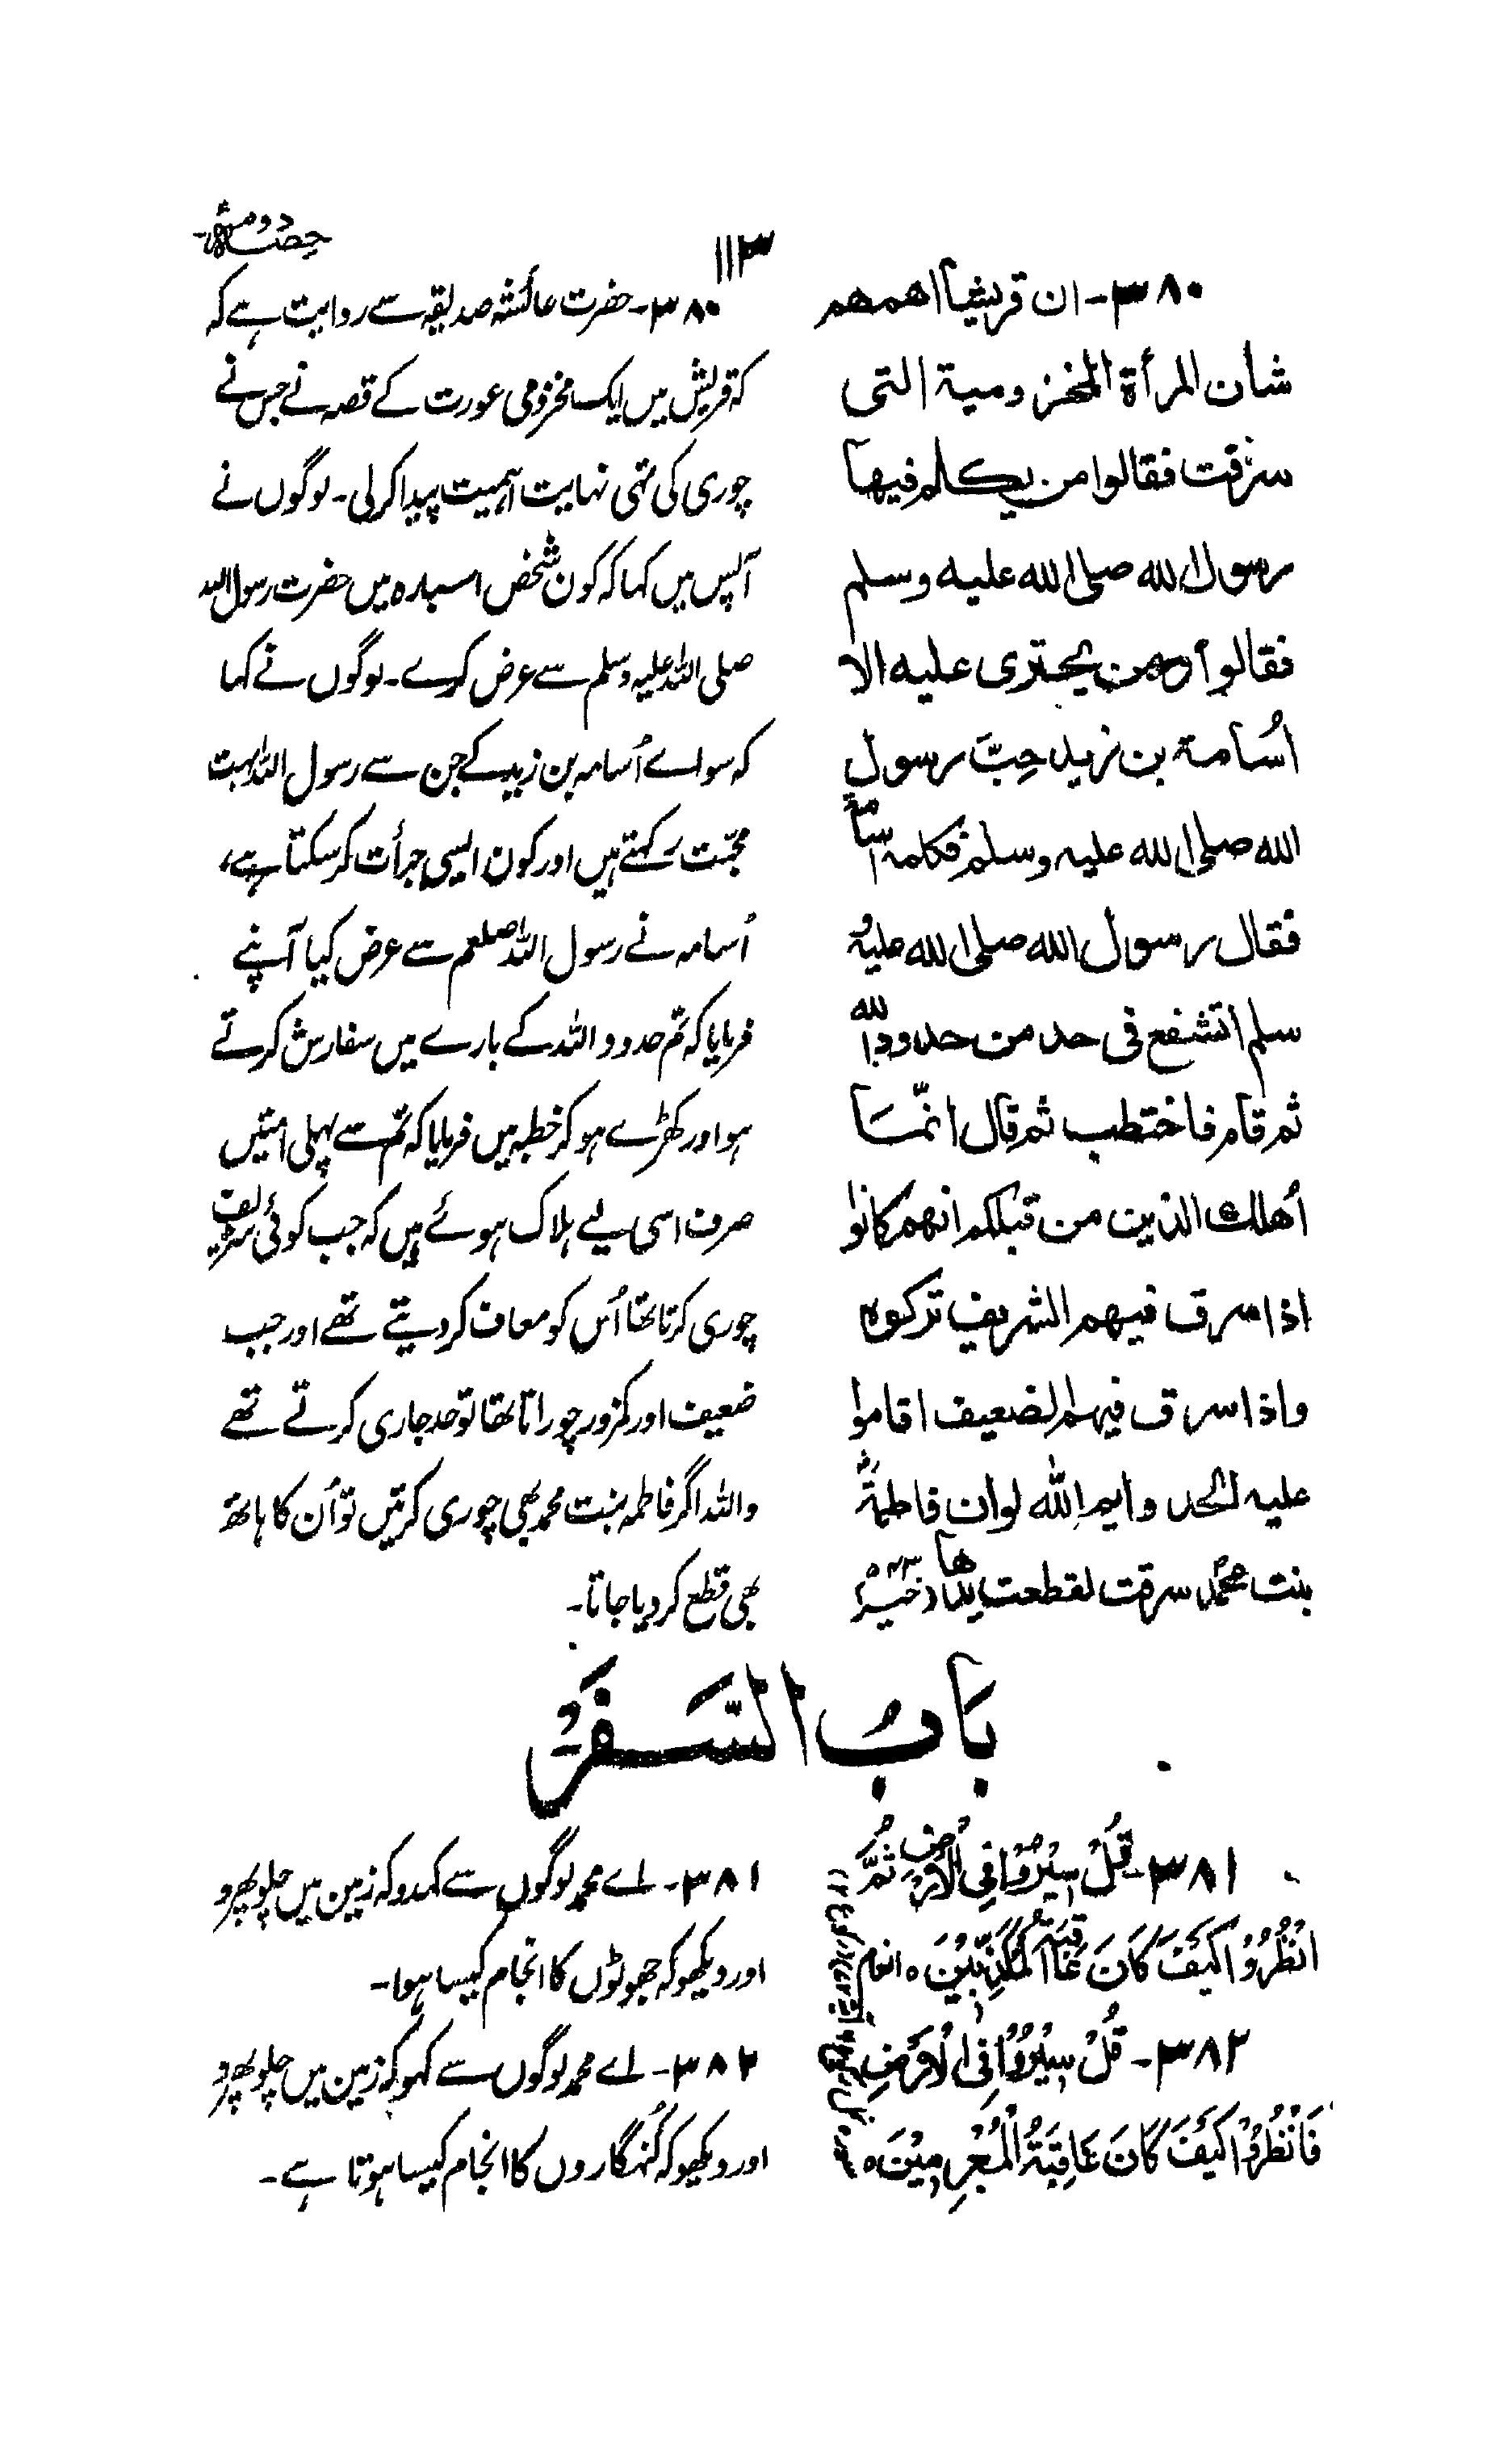 حصہ دوم
۱۱۳
۳۸۰- ان قریشاً اھمھم
شان المرأة المخزومیة التی
سرقت فقالوا من یکلم فیھا
رسول الله صلی الله علیه وسلم
فقالوا ومن یجتری علیه الا
اُسامة بن زید حِبّ رسول
الله صلی الله علیه وسلم فکلمه اسامة
فقال رسول الله صلی الله علیه و
سلم اتشفع فی حد من حدود الله
ثم قام فاختطب ثم قال انّما
أھلك الذین من قبلکم انھم کانوا
اذا سرق فیھم الشریف ترکوه
واذا سرق فیھم الضعیف اقاموا
علیه الحد وایم الله لو ان فاطمة
بنت محمد سرقت لقطعت یدھا
۳۸۰- حضرت عائشہ صدیقہ سے روایت ہے کہ
کہ قریش میں ایک مخزومی عورت کے قصہ نے جس نے
چوری کی تھی نہایت اہمیت پیدا کرلی۔ لوگوں نے
آپس میں کہا کہ کون شخص اسبارہ میں حضرت رسول اللہ
صلی اللہ علیہ وسلم سے عرض کرے۔ لوگوں نے کہا
کہ سواے اُسامہ بن زید کے جن سے رسول اللہ بہت
محبّت رکھتے ہیں اور کون ایسی جرأت کرسکتا ہے،
اُسامہ نے رسول اللہ صلعم سے عرض کیا آپنے
فرمایا کہ تم حدود اللہ کے بارے میں سفارش کرتے
ہو اور کھڑے ہو کر خطبہ میں فرمایا کہ تم سے پہلی امتیں
صرف اسی لیے ہلاک ہوئے ہیں کہ جب کوئی شریف
چوری کرتا تھا اُس کو معاف کردیتے تھے اور جب
ضعیف اور کمزور چوراتا تھا تو حد جاری کرتے تھے
واللہ اگر فاطمہ بنت محمد بھی چوری کرتیں تو اُن کا ہاتھ
بھی قطع کردیا جاتا۔
بَابُ السَّفَرِ
۳۸۱- قُلْ سِیْرُوْا فِی الْاَرْضِ ثُمَّ
انْظُرُوْا کَیْفَ کَانَ عَاقِبَةُ الْمُکَذِّبِیْنَ ہ انعام
۳۸۲- قُلْ سِیْرُوْا فِی الْاَرْضِ
فَانْظُرُوْا کَیْفَ کَانَ عَاقِبَةُ الْمُجْرِمِیْنَ ہ
۳۸۱- اے محمد لوگوں سے کہدو کہ زمین میں چلو پھرو
اور دیکھو کہ جھوٹوں کا انجام کیسا ہوا۔
۳۸۲- اے محمد لوگوں سے کہو کہ زمین میں چلو پھرو
اور دیکھو کہ گُنہگاروں کا انجام کیسا ہوتا ہے۔